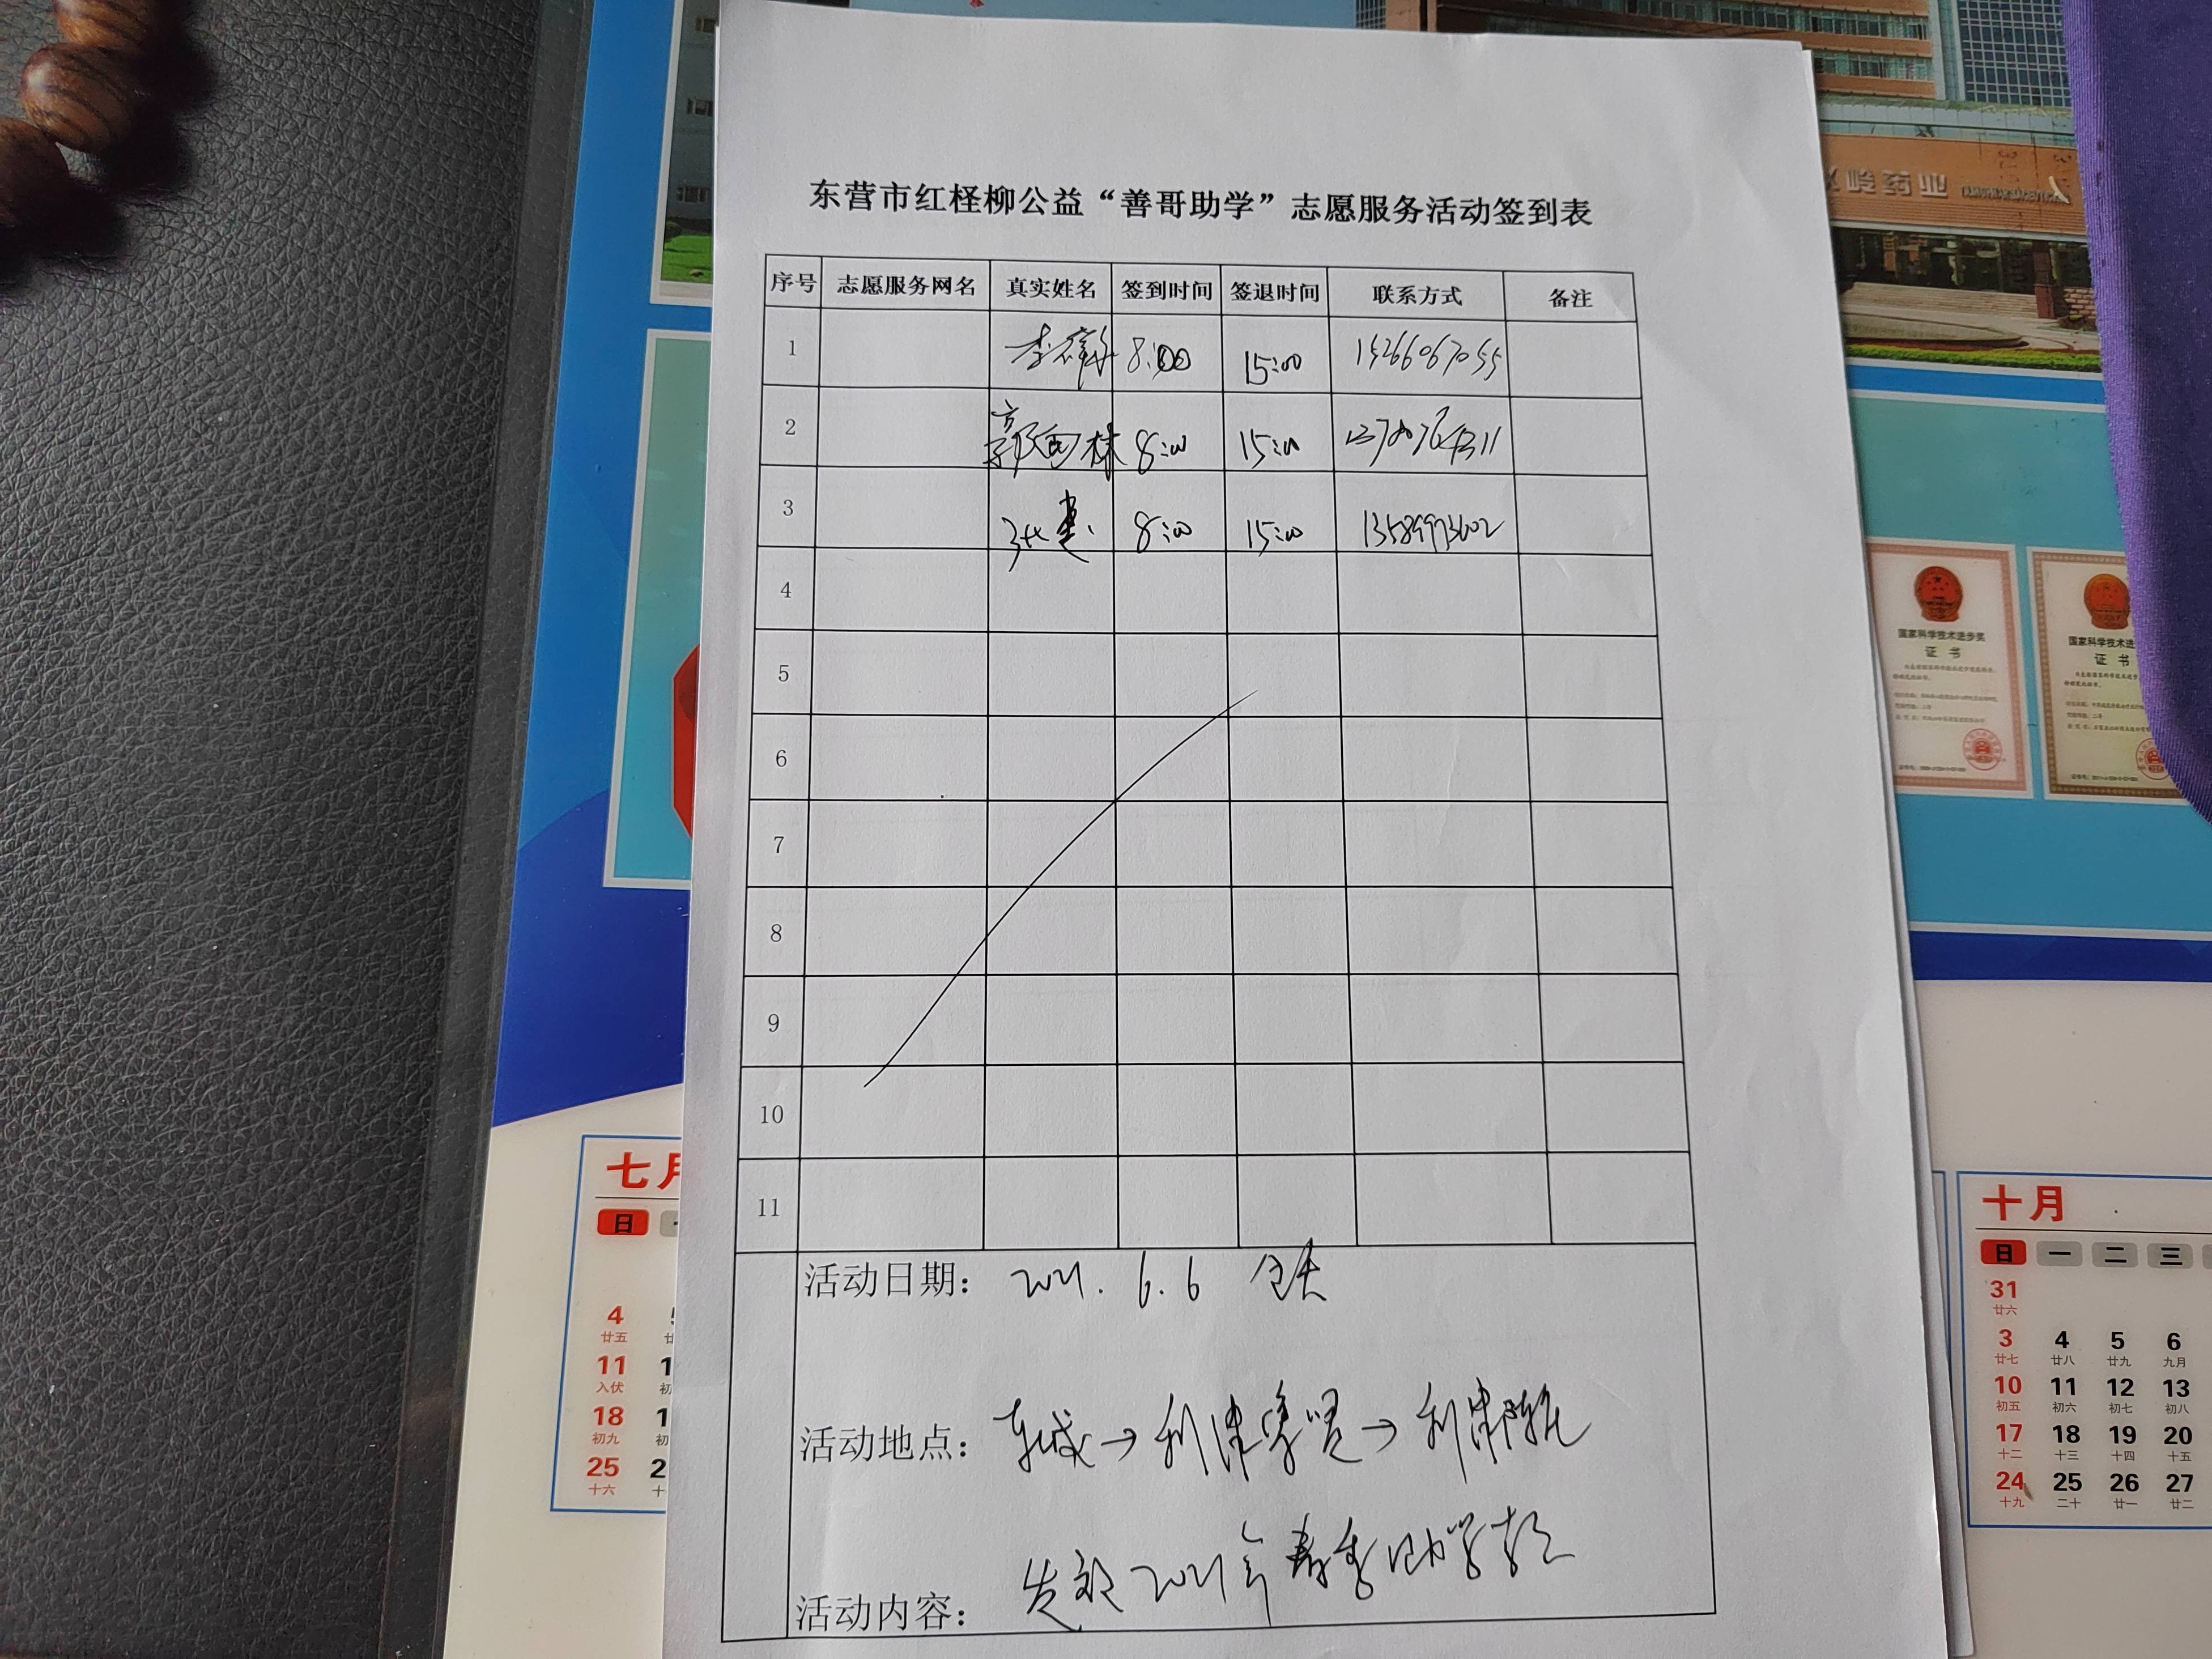 东营市红柽柳公益“善哥助学”志愿服务活动签到表
序号 志愿服务网名 真实姓名 签到时间 签退时间 联系方式 备注
1 8:00 15:00 15266067055
2 8:00 15:00
3 8:00 15:00 13589973602
4
5
6
7
8
9
10
11
活动日期: 2021.6.6 全天
活动地点: 东城→利津
活动内容: 发放2021年春季助学款
岭药业
国家科学技术进步奖
证书
国家科学技术进
证书
七月
日
4
廿五
11
入伏
18
初九
25
十六
十月
日 一 二 三
31
廿六
3 4 5 6
廿七 廿八 廿九 九月
10 11 12 13
初五 初六 初七 初八
17 18 19 20
十二 十三 十四 十五
24 25 26 27
十九 二十 廿一 廿二